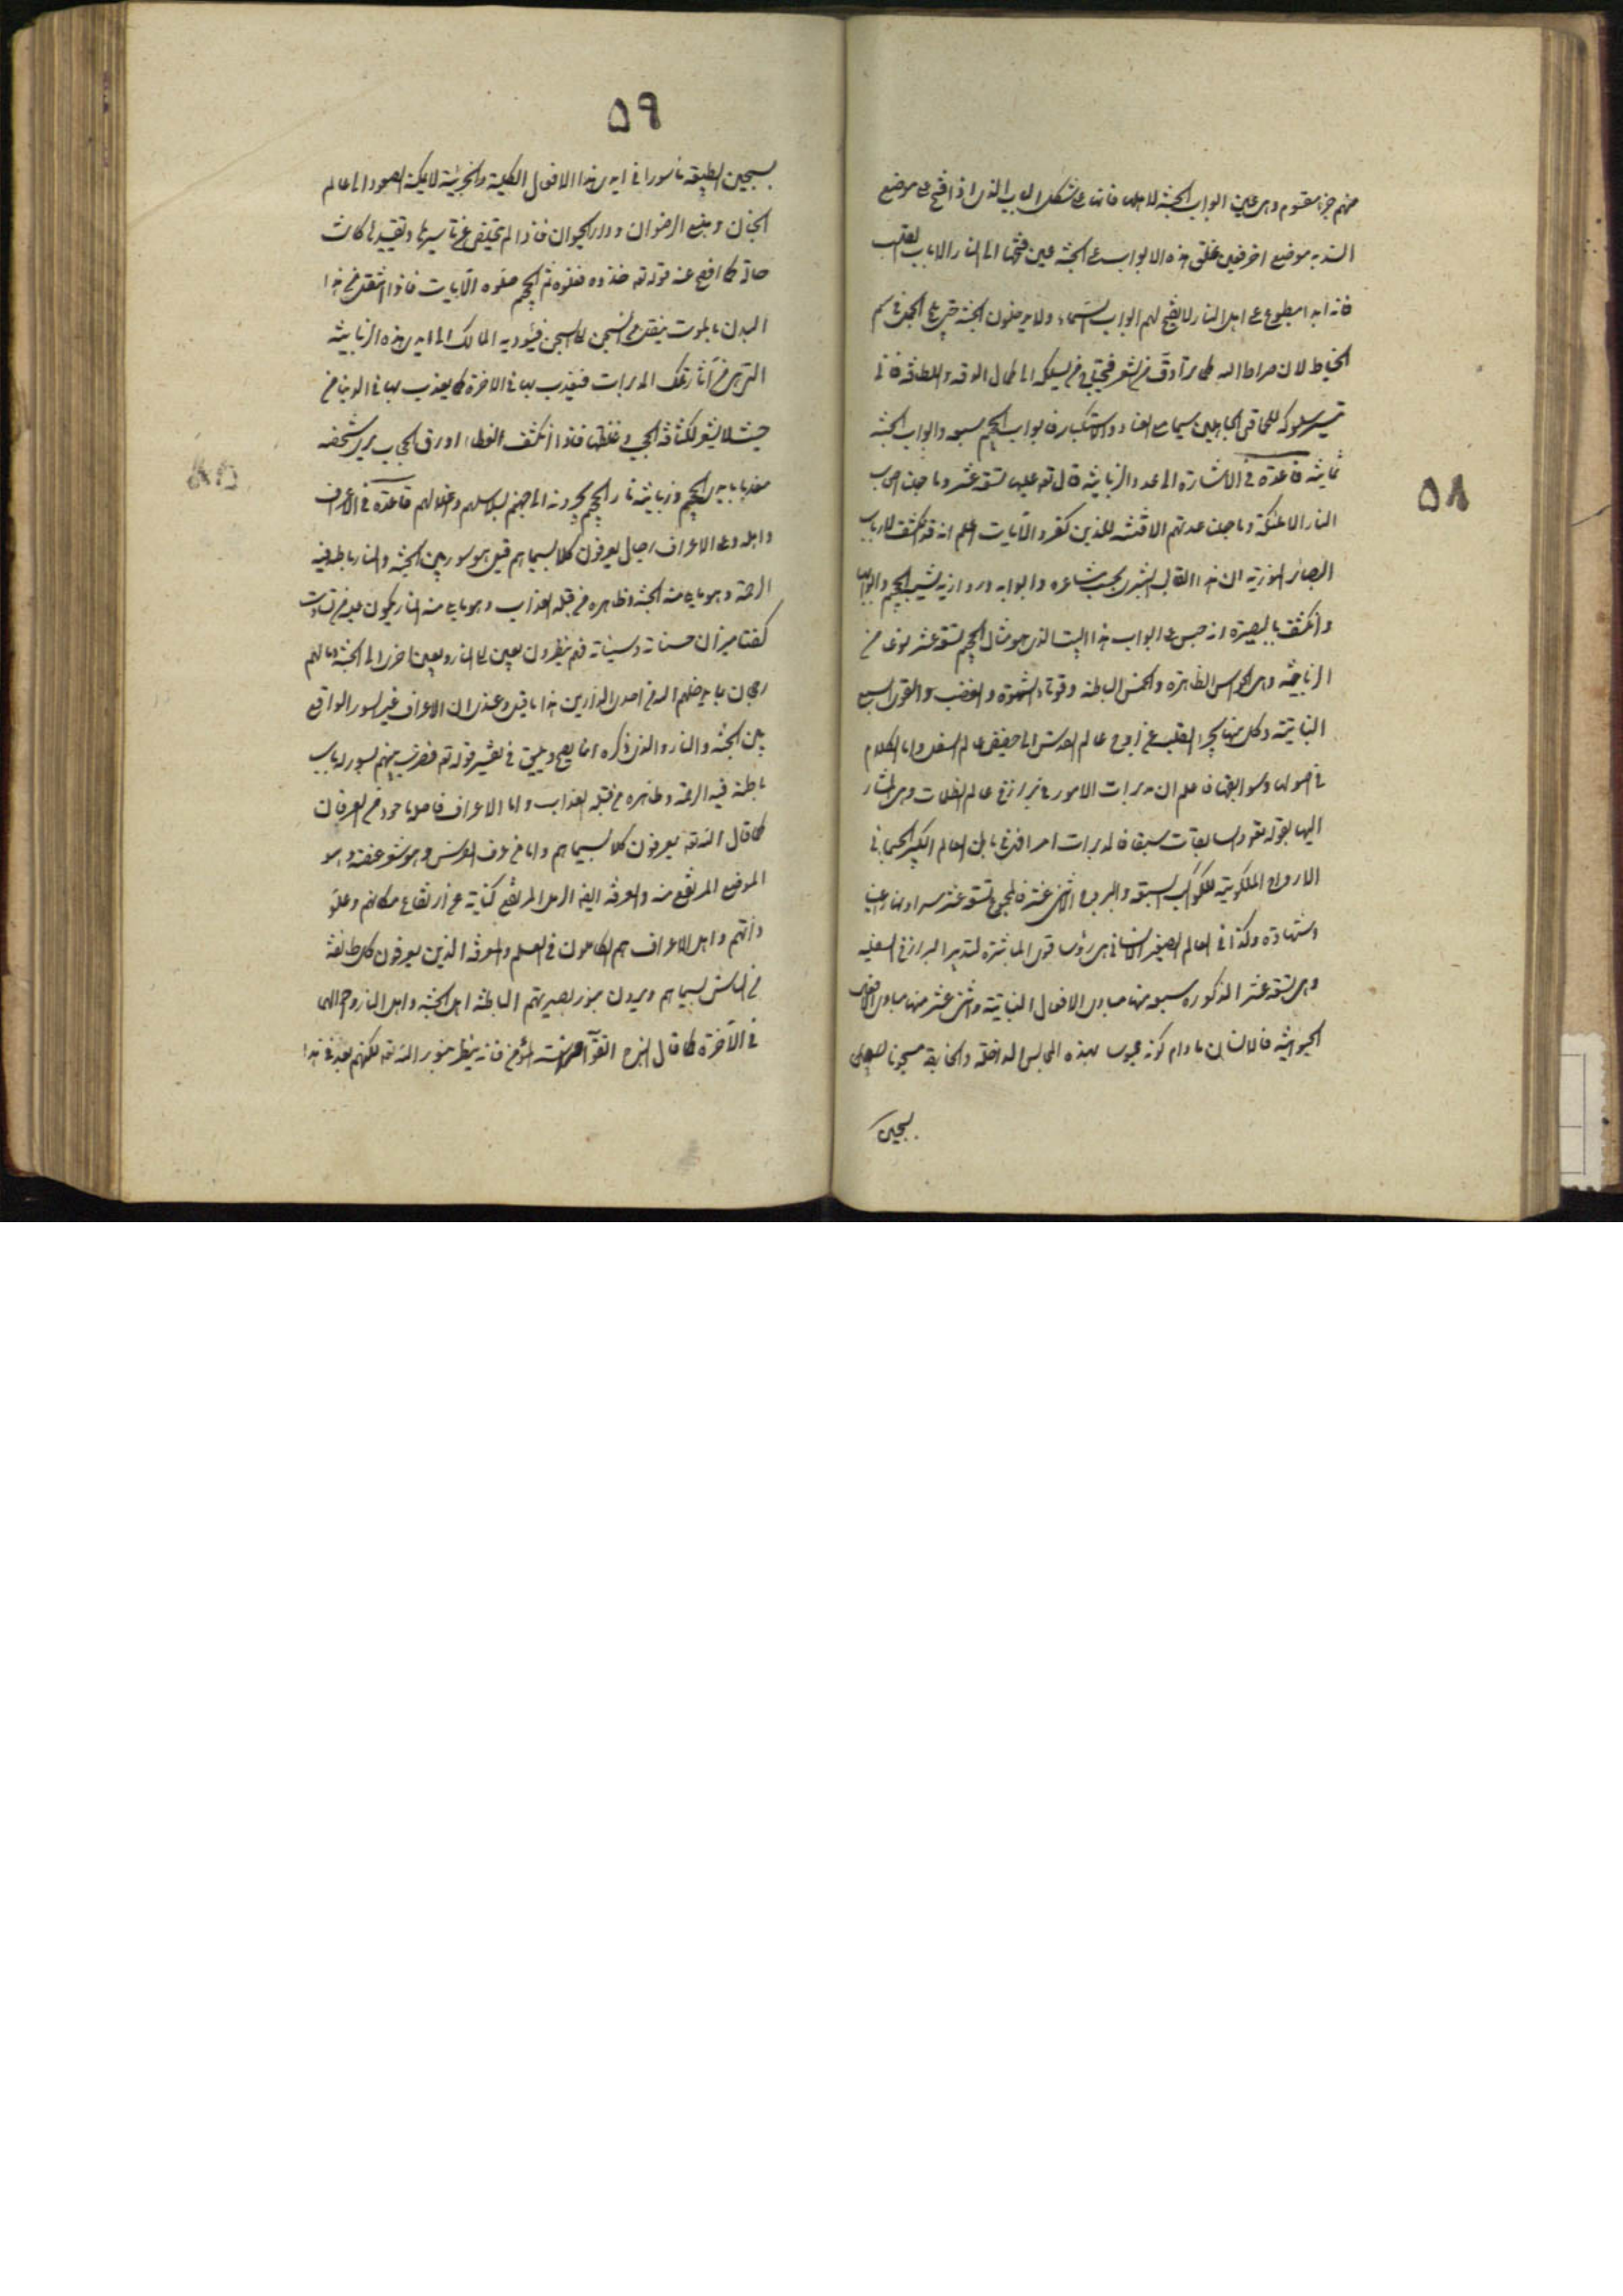 ٥٨
منهم جزء مقسوم وهى عين ابواب الجنة لاهلها فانها على شكل الباب الذى اذا فتح على موضع
انسد به موضع اخر فعين غلق هذه الابواب على الجنة عين فتحها الى النار الا باب القلب
فانه ابدا مطبوع على اهل النار لا يفتح لهم ابواب السماء ولا يدخلون الجنة حتى يلج الجمل فى سم
الخياط لان صراط الله كما مر ادق من الشعر فيحتاج من يسلكه الى كمال الدقة واللطافة فانى
تيسر سلوكه للحمقى الجاهلين سيما مع العناد والاستكبار فابواب الجحيم سبعة وابواب الجنة
ثمانية قاعدة فى الاشارة الى عدد الزبانية قال تع عليها تسعة عشر وما جعلنا اصحاب
النار الا ملئكة وما جعلنا عدتهم الا فتنة للذين كفروا الآيات اعلم انه قد انكشف لارباب
البصائر النورية ان هذا القالب البشرى بحسب مشاعره وابوابه وروازنه يشبه الجحيم وابوابها
وانكشف بالبصيرة انه جلس على ابواب هذا البيت الذى هو مثال الجحيم تسعة عشر نوعا من
الزبانية وهى الحواس الظاهرة والخمس الباطنة وقوتا الشهوة والغضب والقوى السبع
النباتية وكل منها يجر القلب عن اوج عالم القدس الى حضيض عالم السفل واما الكلام
فى اصولها وسوابقها فاعلم ان مدبرات الامور فى برازخ عالم الظلمات وهى المشار
اليها بقوله تعه والسابقات سبقا فالمدبرات امرا فهى فى باطن العالم الكبير الجسمانى
الارواح الملكوتية للكواكب السبعة والبروج الاثنى عشر فالمجموع تسعة عشر سرا وعلنا وغيبا
وشهادة وكذا فى العالم الصغير الانسانى هى رؤساء القوى المباشرة لتدبير البرازخ السفلية
وهى تسعة عشر المذكورة سبعة منها مبادى الافعال النباتية واثنى عشر منها مبادى الافعال
الحيوانية فالانسان ما دام كونه محبوسا بهذه المحابس الداخلة والخارجة مسجونا
بسجين
٥٩
بسجين الطبيعة ماسورا فى ايدى هذا الافعال الكلية والجزئية لا يمكنه الصعود الى عالم
الجنان ومنبع الرضوان ودار الحيوان فاذا لم يتخلص عن تاثيرها وتقييدها كانت
حاله كما افصح عنه قوله تع خذوه فغلوه ثم الجحيم صلوه الآيات فاذا انتقل من هذا
البدن بالموت ينتقل من السجن الى السجين فيؤديه المالك الى ايدى هذه الزبانية
التى هى من آثار تلك المدبرات فيعذب بها فى الاخرة كما يعذب بها فى الدنيا من
حيث لا يشعر لكثافة الحجب وغلظها فاذا انكشف الغطاء ورق الحجاب يرى شخصه
معذبا بايدى الجحيم وزبانية نار الجحيم يجرونه الى جهنم بسلاسلهم واغلالهم قاعدة فى الاعراف
واهله وعلى الاعراف رجال يعرفون كلا بسيماهم قيل هو سور بين الجنة والنار باطنه فيه
الرحمة وهو ما يلى منه الجنة وظاهره من قبله العذاب وهو ما يلى منه النار يكون عليه من تساوت
كفتا ميزان حسناته وسيئاته فهم ينظرون بعين الى النار وبعين اخرى الى الجنة وما لهم
رجحان بما يدخلهم الله فى احدى الدارين هذا ما قيل وعندى ان الاعراف غير السور الواقع
بين الجنة والنار والذى ذكره انما يصح ويليق فى تفسير قوله تع فضرب بينهم بسور له باب
باطنه فيه الرحمة وظاهره من قبله العذاب واما الاعراف فاصله ماخوذ من العرفان
كما قال الله تع يعرفون كلا بسيماهم واما من عرف الفرس وهو شعر عنقه وهو
الموضع المرتفع منه والعرفة ايضا الرمل المرتفع كناية عن ارتفاع مكانهم وعلو
ذاتهم واهل الاعراف هم الكاملون فى العلم والمعرفة الذين يعرفون كل طائفة
من الناس بسيماهم ويرون بنور بصيرتهم الباطنة اهل الجنة واهل النار واحوالهما
فى الآخرة كما قال النبى ص اتقوا فراسة المؤمن فانه ينظر بنور الله تع لكنهم بعد فى هذا